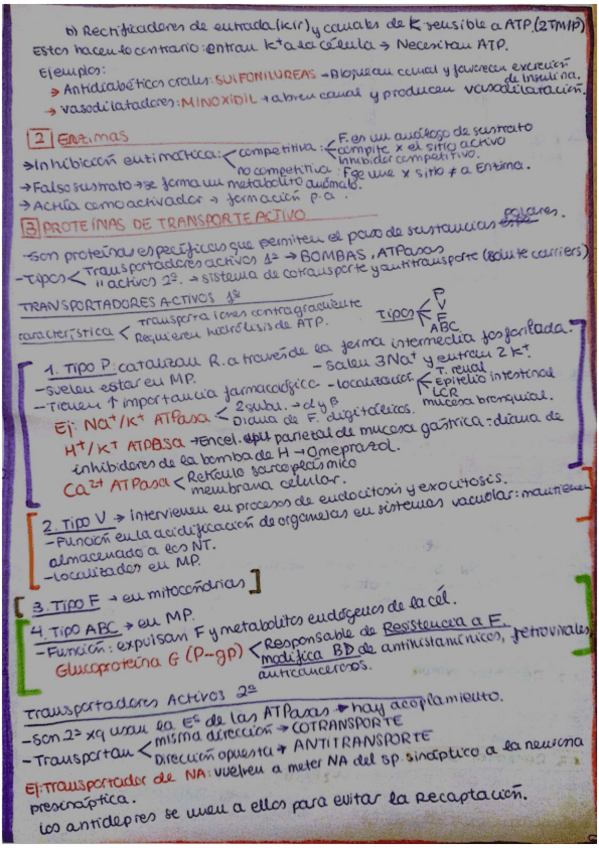 b) Rectificadores de entrada (Kir) y canales de K sensible a ATP. (2TM1P)
Estos hacen lo contrario: entran K+ a la célula → Necesitan ATP.
Ejemplos:
→ Antidiabéticos orales: SULFONILUREAS → Bloquean canal y favorecen excreción de insulina.
→ vasodilatadores: MINOXIDIL → abren canal y producen vasodilatación.
2 Enzimas
→ Inhibición enzimática: competitiva: F. es un análogo de sustrato
compite x el sitio activo
Inhibidor competitivo.
no competitiva: F se une x sitio ≠ a Enzima.
→ Falso sustrato → se forma un metabolito anómalo.
→ Actúa como activador → formación p.a.
3 PROTEÍNAS DE TRANSPORTE ACTIVO
- Son proteínas específicas que permiten el paso de sustancias polares.
- Tipos < Transportadores activos 1º → BOMBAS, ATPasas
" activos 2º. → sistema de cotransporte y antitransporte (solute carriers)
TRANSPORTADORES ACTIVOS 1º
característica < Transporta iones contragradiente
Requieren hidrólisis de ATP.
Tipos < P
V
F
ABC
1. Tipo P: catalizan R. a través de la forma intermedia fosforilada.
- Suelen estar en MP.
- Salen 3Na+ y entran 2 K+.
- Tienen ↑ importancia farmacológica
- localización < T. renal
Epitelio intestinal
LCR
mucosa bronquial.
Ej: Na+/K+ ATPasa < 2 subu. → α y β
Diana de F. digitálicos.
H+/K+ ATPasa → En cel. parietal de mucosa gástrica = diana de
inhibidores de la bomba de H → Omeprazol.
Ca2+ ATPasa < Retículo sarcoplásmico
membrana celular.
2. Tipo V → Intervienen en procesos de endocitosis y exocitosis.
- Función en la acidificación de organelas en sistemas vacuolar: mantienen
almacenado a los NT.
- Localizados en MP.
3. Tipo F → en mitocondrias
4. Tipo ABC → en MP.
- Función: expulsan F y metabolitos endógenos de la cél.
Glucoproteína G (P-gp) < Responsable de Resistencia a F.
modifica BD de antihistamínicos, retrovirales,
anticancerosos.
Transportadores Activos 2º
- Son 2º xq usan la Eª de las ATPasas → hay acoplamiento.
- Transportan < misma dirección → COTRANSPORTE
Dirección opuesta → ANTITRANSPORTE
Ej: Transportador de NA: vuelven a meter NA del sp sináptico a la neurona
presináptica.
Los antidepres se unen a ellos para evitar la Recaptación.